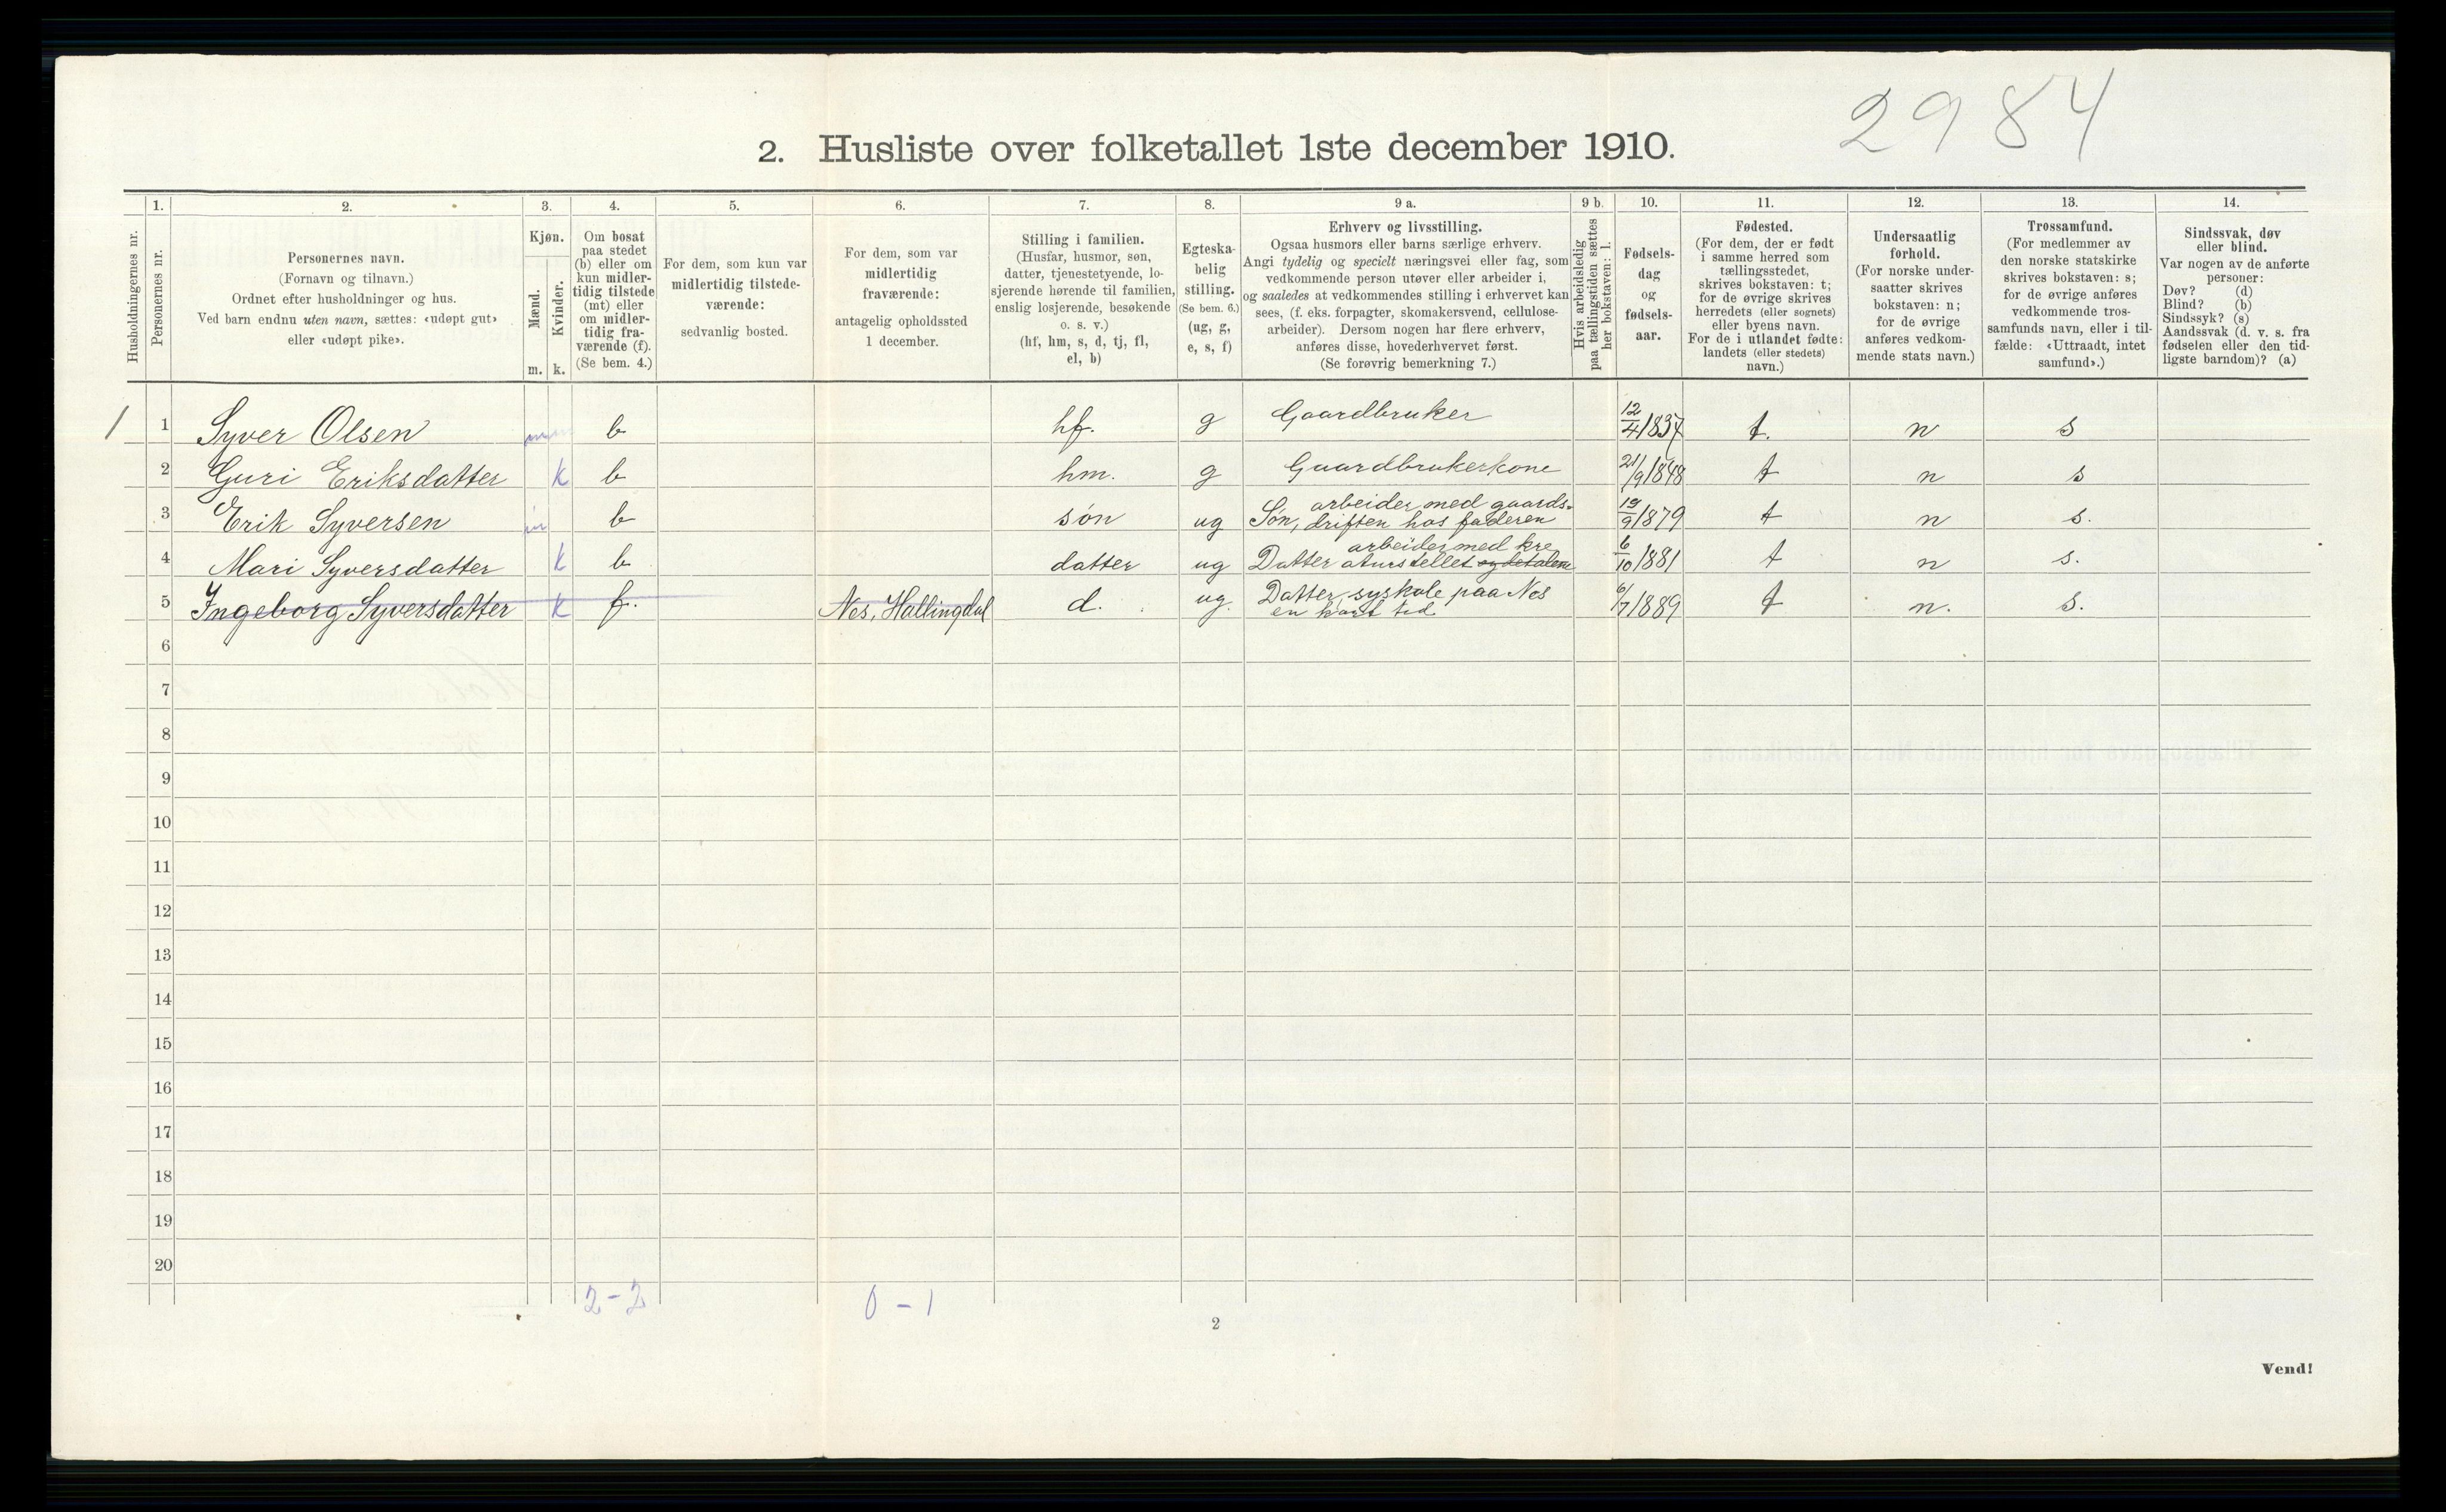 2984
2. Husliste over folketallet 1ste december 1910.
Husholdningernes nr.
1.
Personernes nr.
2.
Personernes navn.
(Fornavn og tilnavn.)
Ordnet efter husholdninger og hus.
Ved barn endnu uten navn, sættes: «udøpt gut»
eller «udøpt pike».
3.
Kjøn.
Mænd.
Kvinder.
m. k.
4.
Om bosat
paa stedet
(b) eller om
kun midler-
tidig tilstede
(mt) eller
om midler-
tidig fra-
værende (f).
(Se bem. 4.)
5.
For dem, som kun var
midlertidig tilstede-
værende:
sedvanlig bosted.
6.
For dem, som var
midlertidig
fraværende:
antagelig opholdssted
1 december.
7.
Stilling i familien.
(Husfar, husmor, søn,
datter, tjenestetyende, lo-
sjerende hørende til familien,
enslig losjerende, besøkende
o. s. v.)
(hf, hm, s, d, tj, fl,
el, b)
8.
Egteska-
belig
stilling.
(Se bem. 6.)
(ug, g,
e, s, f)
9 a.
Erhverv og livsstilling.
Ogsaa husmors eller barns særlige erhverv.
Angi tydelig og specielt næringsvei eller fag, som
vedkommende person utøver eller arbeider i,
og saaledes at vedkommendes stilling i erhvervet kan
sees, (f. eks. forpagter, skomakersvend, cellulose-
arbeider). Dersom nogen har flere erhverv,
anføres disse, hovederhvervet først.
(Se forøvrig bemerkning 7.)
9 b.
Hvis arbeidsledig
paa tællingstiden sættes
her bokstaven: l.
10.
Fødsels-
dag
og
fødsels-
aar.
11.
Fødested.
(For dem, der er født
i samme herred som
tællingsstedet,
skrives bokstaven: t;
for de øvrige skrives
herredets (eller sognets)
eller byens navn.
For de i utlandet fødte:
landets (eller stedets)
navn.)
12.
Undersaatlig
forhold.
(For norske under-
saatter skrives
bokstaven: n;
for de øvrige
anføres vedkom-
mende stats navn.)
13.
Trossamfund.
(For medlemmer av
den norske statskirke
skrives bokstaven: s;
for de øvrige anføres
vedkommende tros-
samfunds navn, eller i til-
fælde: «Uttraadt, intet
samfund».)
14.
Sindssvak, døv
eller blind.
Var nogen av de anførte
personer:
Døv? (d)
Blind? (b)
Sindssyk? (s)
Aandssvak (d. v. s. fra
fødselen eller den tid-
ligste barndom)? (a)
1 1 Syver Olsen m b hf. g Gaardbruker 12/4 1837 t. n s
2 Guri Eriksdatter k b hm. g Gaardbrukerkone 21/9 1848 t n s
3 Erik Syversen m b søn ug Søn, arbeider med gaards-
driften hos faderen 19/9 1879 t n s.
4 Mari Syversdatter k b datter ug Datter arbeider med kre
aturstellet 6/10 1881 t n s.
5 Ingeborg Syversdatter k f. Nes, Hallingdal d. ug. Datter, syskole paa Nes
en kort tid 6/7 1889 t n. s.
6
7
8
9
10
11
12
13
14
15
16
17
18
19
20
2-2 0-1
2
Vend!